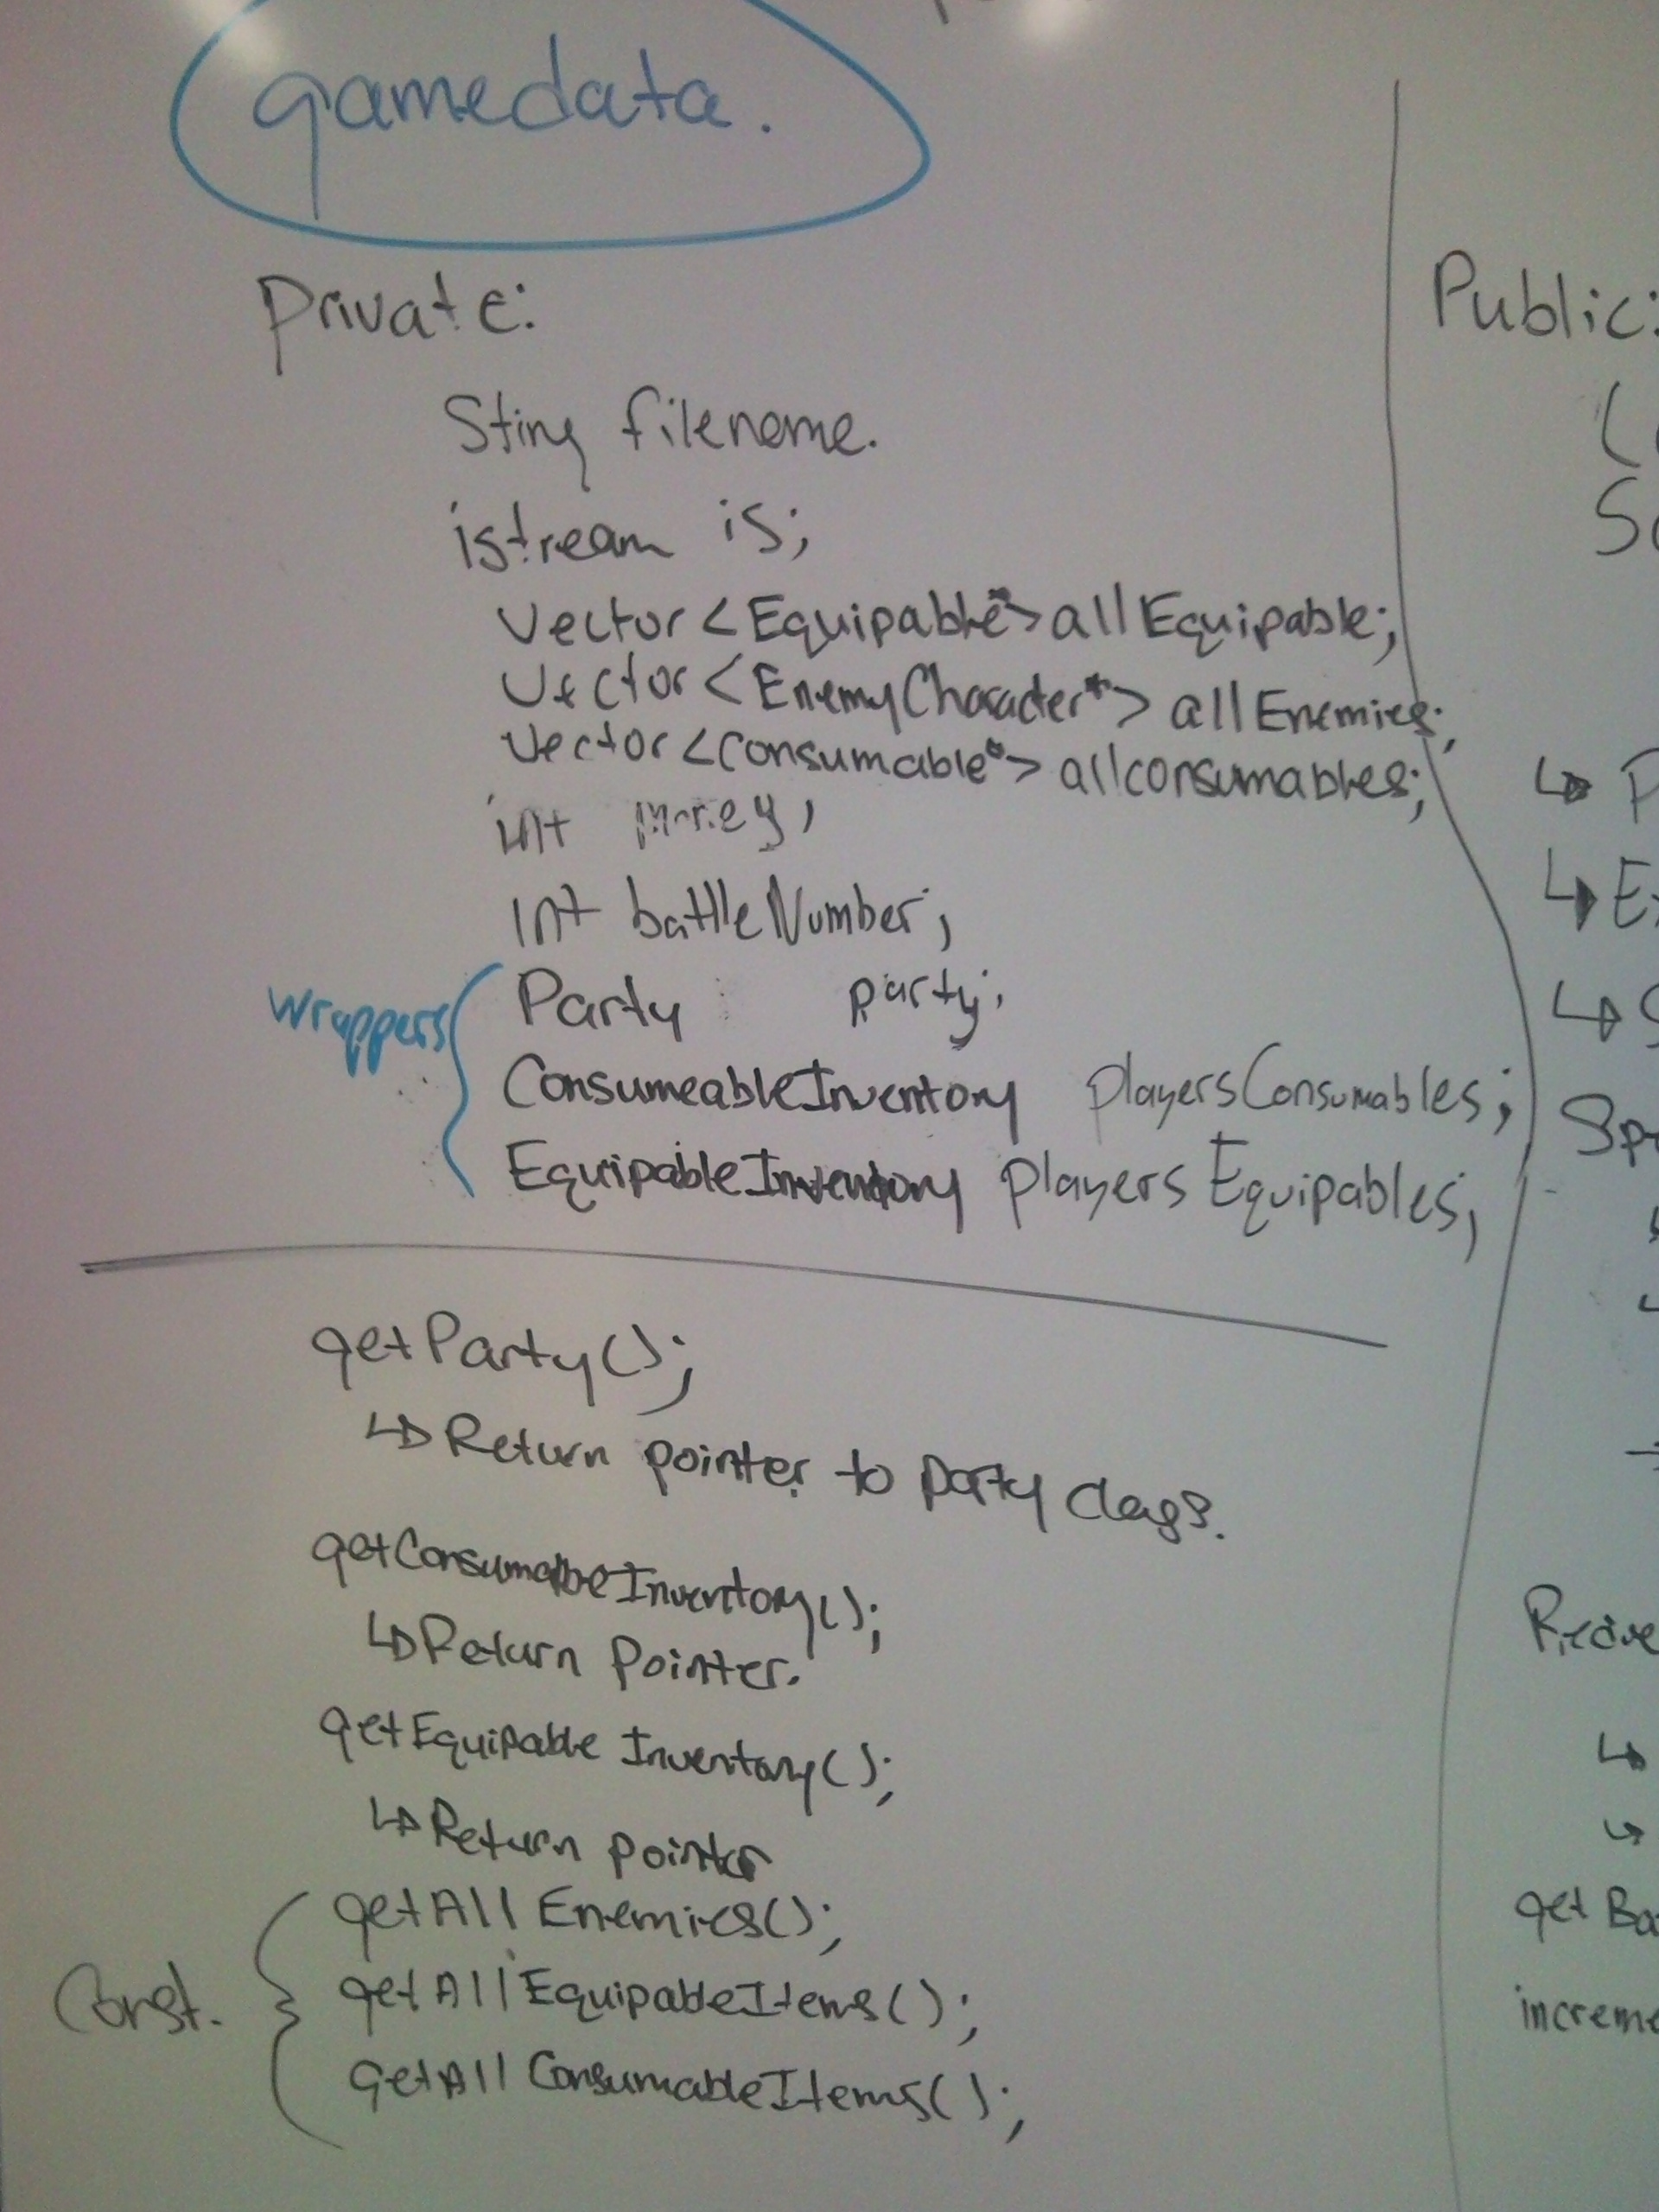 gamedata.
Private:
Sting filename.
istream is;
Vector <Equipable*> allEquipable;
Vector <EnemyCharacter*> allEnemies;
Vector <Consumable*> allconsumables;
int money;
int battleNumber;
wrappers
Party party;
ConsumeableInventory playersConsumables;
EquipableInventory playersEquipables;
getParty();
↳Return pointer to party class.
getConsumableInventory();
↳Return Pointer.
getEquipable Inventory();
↳Return pointer
Const.
getAll Enemies();
getAllEquipableItems();
getAll ConsumableItems();
Public:
get Ba
increme